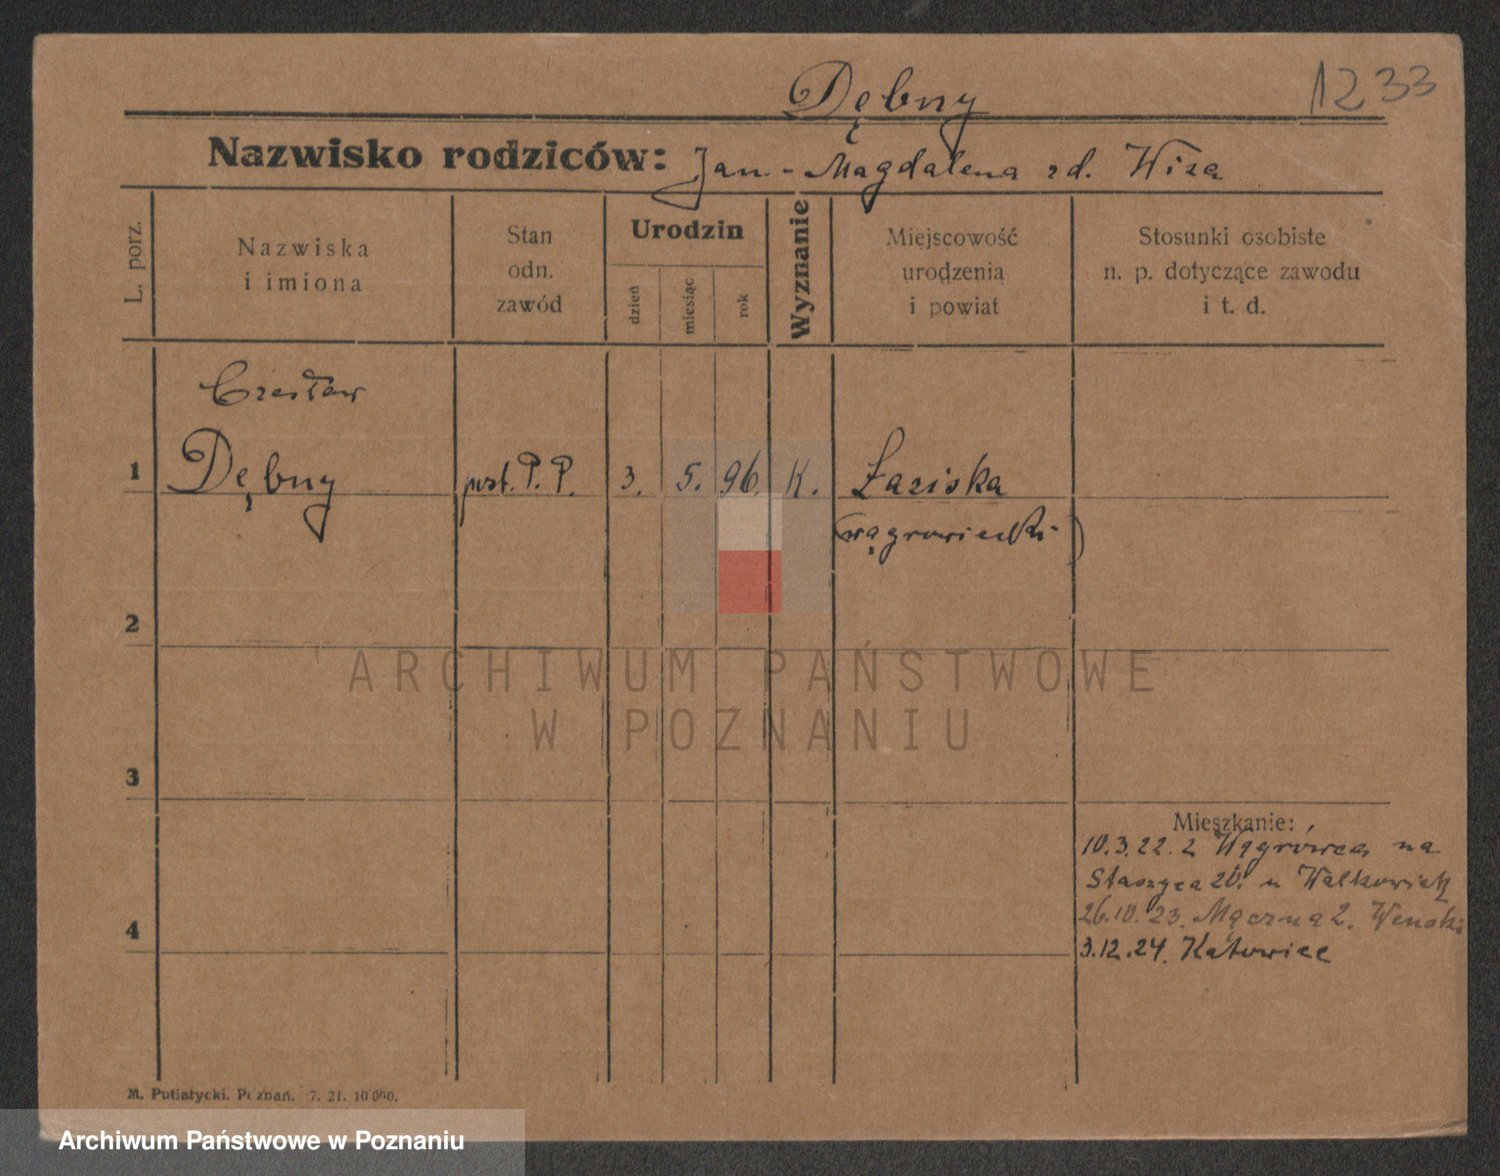 Dębny
1233
Nazwisko rodziców: Jan - Magdalena zd. Wiza
L. porz.
Nazwiska
i imiona
Stan
odn.
zawód
Urodzin
dzień
miesiąc
rok
Wyznanie
Miejscowość
urodzenia
i powiat
Stosunki osobiste
n. p. dotyczące zawodu
i t. d.
Czesław
1 Dębny post. P. P. 3. 5. 96. K. Łaziska
(wągrowiecki)
2
ARCHIWUM PAŃSTWOWE
W POZNANIU
3
Mieszkanie:
10.3.22. z Wągrówca na
Staszyca 20. u Walkowiak
4
26.10.23. Mączna 2. Wenski
3.12.24. Katowice
M. Putiatycki. Poznań. 7. 21. 10 000.
Archiwum Państwowe w Poznaniu